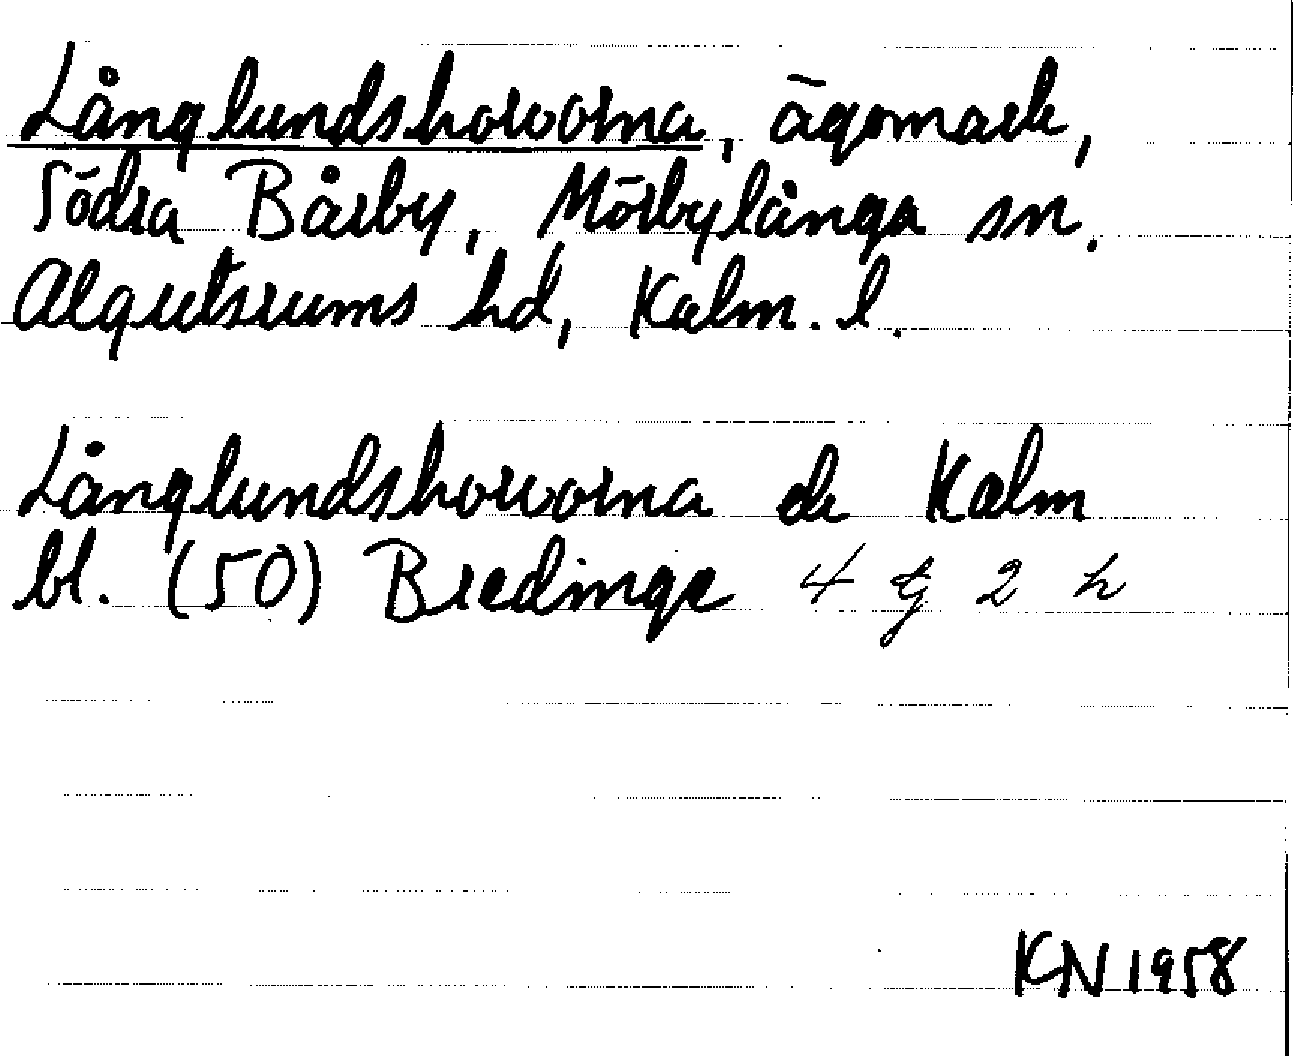 Långlundshorvorna, ägomark,
Södra Bårby, Mörbylånga sn.
Algutsrums hd, Kalm. l.
Långlundshorvorna ek Kalm
bl. (50) Bredinge 4 g 2 h
KN 1958